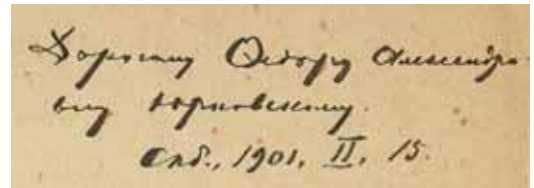 Дорогому Ѳедору Александро-
вичу Юрковскому.
Спб., 1901, II, 15.